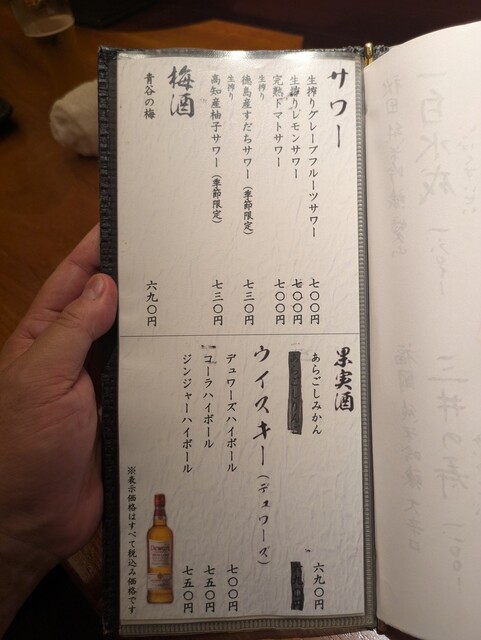 サワー
生搾りグレープフルーツサワー 七〇〇円
生搾りレモンサワー 七〇〇円
完熟トマトサワー 七〇〇円
生搾り
徳島産すだちサワー(季節限定) 七三〇円
生搾り
高知産柚子サワー(季節限定) 七三〇円
梅酒
青谷の梅 六九〇円
果実酒
あらごしみかん 六九〇円
ウイスキー(デュワーズ)
デュワーズハイボール 七〇〇円
コーラハイボール 七五〇円
ジンジャーハイボール 七五〇円
※表示価格はすべて税込み価格です
DEWAR'S
一白水成
秋田
三井の寿
福岡